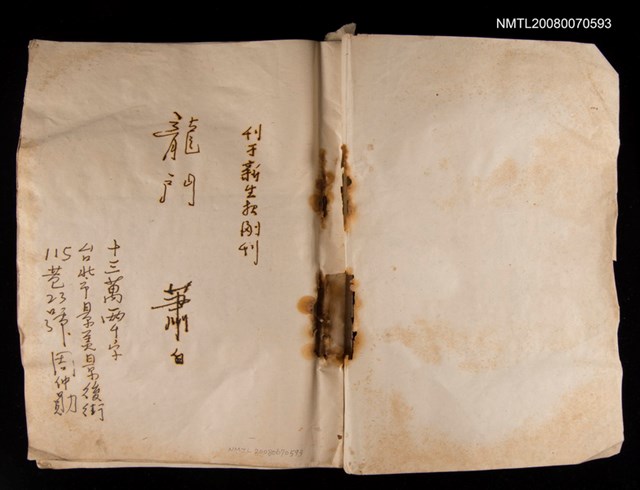 NMTL20080070593
刊于新生報副刊
龍門
蕭白
十三萬兩千字
台北市景美景後街
115巷23號 周仲勛
NMTL 20080070593